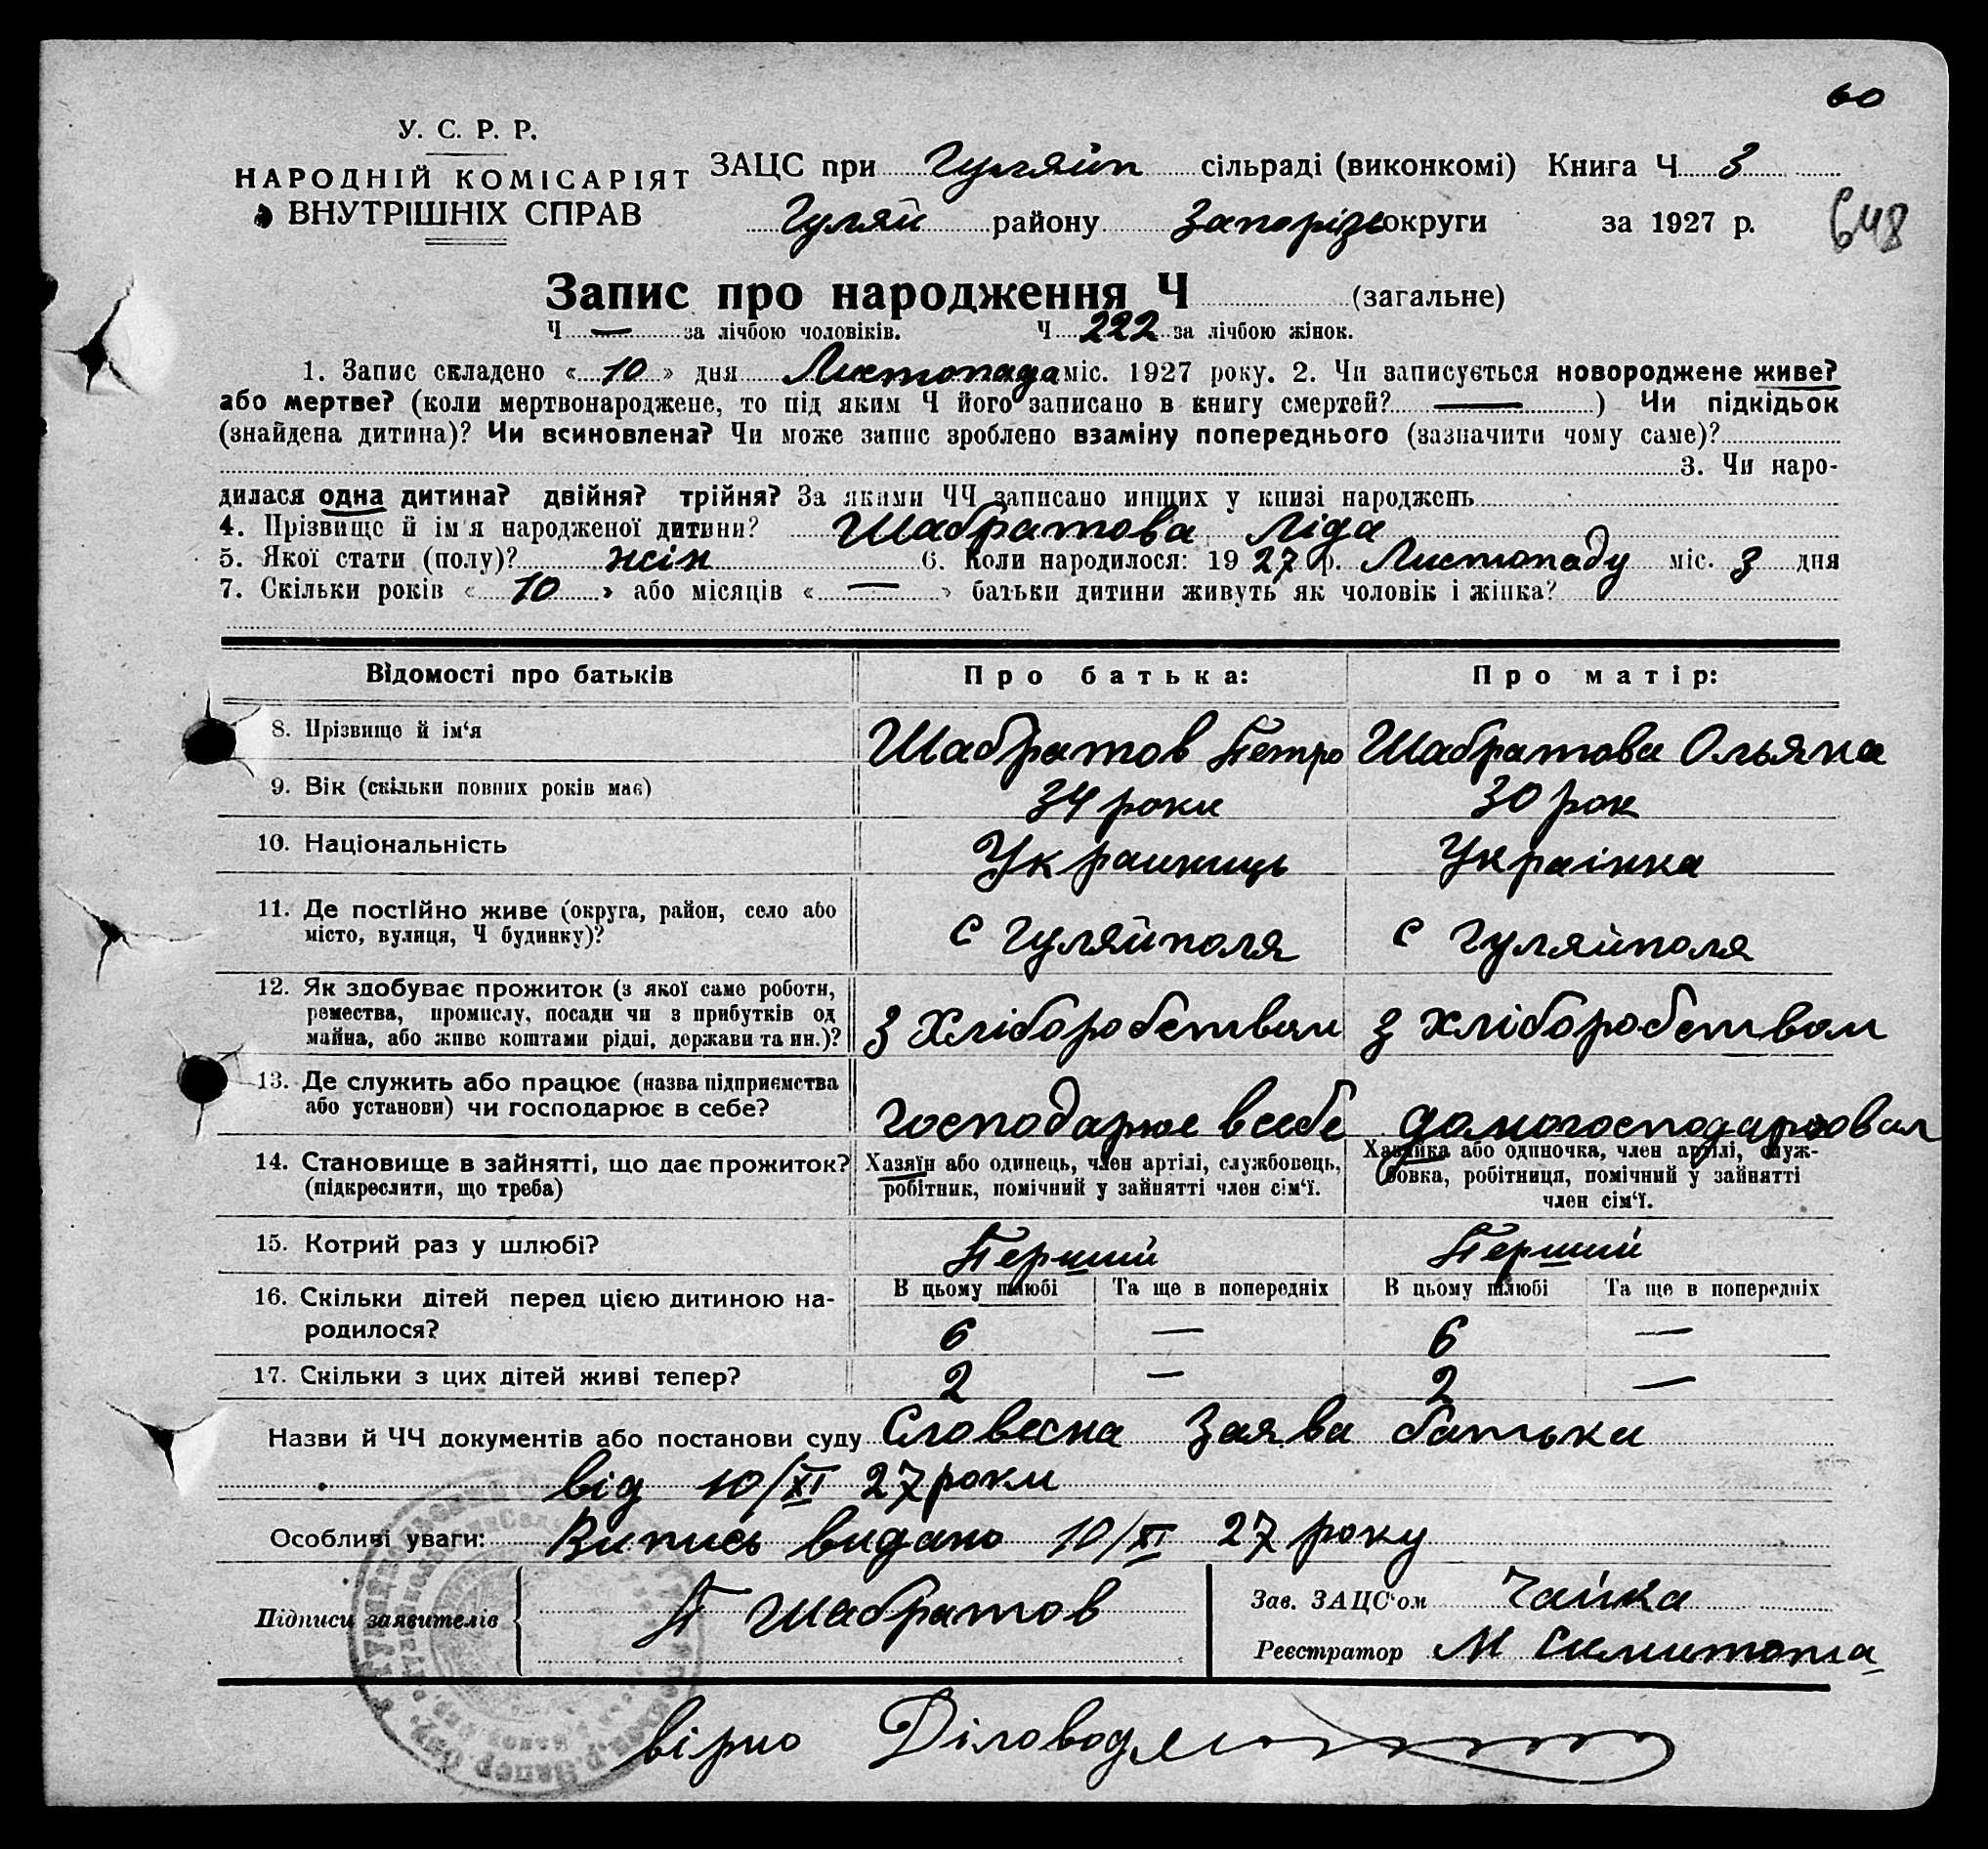 60
У. С. Р. Р.
НАРОДНІЙ КОМІСАРІЯТ
ВНУТРІШНІХ СПРАВ
ЗАЦС при Гуляйп сільраді (виконкомі) Книга Ч 3
Гуляй району Запорізь округи за 1927 р.
648
Запис про народження Ч (загальне)
Ч — за лічбою чоловіків. Ч 222 за лічбою жінок.
1. Запис складено «10» дня Листопада міс. 1927 року. 2. Чи записується новороджене живе?
або мертве? (коли мертвонароджене, то під яким Ч його записано в книгу смертей? —) Чи підкідьок
(знайдена дитина)? Чи всиновлена? Чи може запис зроблено взаміну попереднього (зазначити чому саме)?
3. Чи наро-
дилася одна дитина? двійня? трійня? За якими ЧЧ записано инших у книзі народжень
4. Прізвище й ім'я народженої дитини? Шабратова Ліда
5. Якої стати (полу)? жін 6. Коли народилося: 1927 р. Листопаду міс. 3 дня
7. Скільки років «10» або місяців «—» батьки дитини живуть як чоловік і жінка?
Відомості про батьків Про батька: Про матір:
8. Прізвище й ім‘я Шабратов Петро Шабратова Ольяна
9. Вік (скільки повних років має) 34 роки 30 рок
10. Національність Украинищь Українка
11. Де постійно живе (округа, район, село або
місто, вулиця, Ч будинку)? с Гуляйполя с Гуляйполя
12. Як здобуває прожиток (з якої саме роботи,
ремества, промислу, посади чи з прибутків од
майна, або живе коштами рідні, держави та ин.)? З Хліборобством З хліборобством
13. Де служить або працює (назва підприємства
або установи) чи господарює в себе? Господарює в себе
14. Становище в зайнятті, що дає прожиток?
(підкреслити, що треба)
Хазяїн або одинець, член артілі, службовець,
робітник, помічний у зайнятті член сім‘ї.
Хазяйка або одиночка, член артілі, служ-
бовка, робітниця, помічний у зайнятті
член сім‘ї.
15. Котрий раз у шлюбі? Перший Перший
16. Скільки дітей перед цією дитиною на-
родилося?
В цьому шлюбі Та ще в попередніх В цьому шлюбі Та ще в попередніх
6 — 6 —
17. Скільки з цих дітей живі тепер? 2 — 2 —
Назви й ЧЧ документів або постанови суду Словесна Заява батька
від 10/XI 27 роки
Особливі уваги: Випись видано 10/XI 27 року
Підписи заявителів П Шабратов
Зав. ЗАЦС‘ом Чайка
Реєстратор М
вірно Діловод